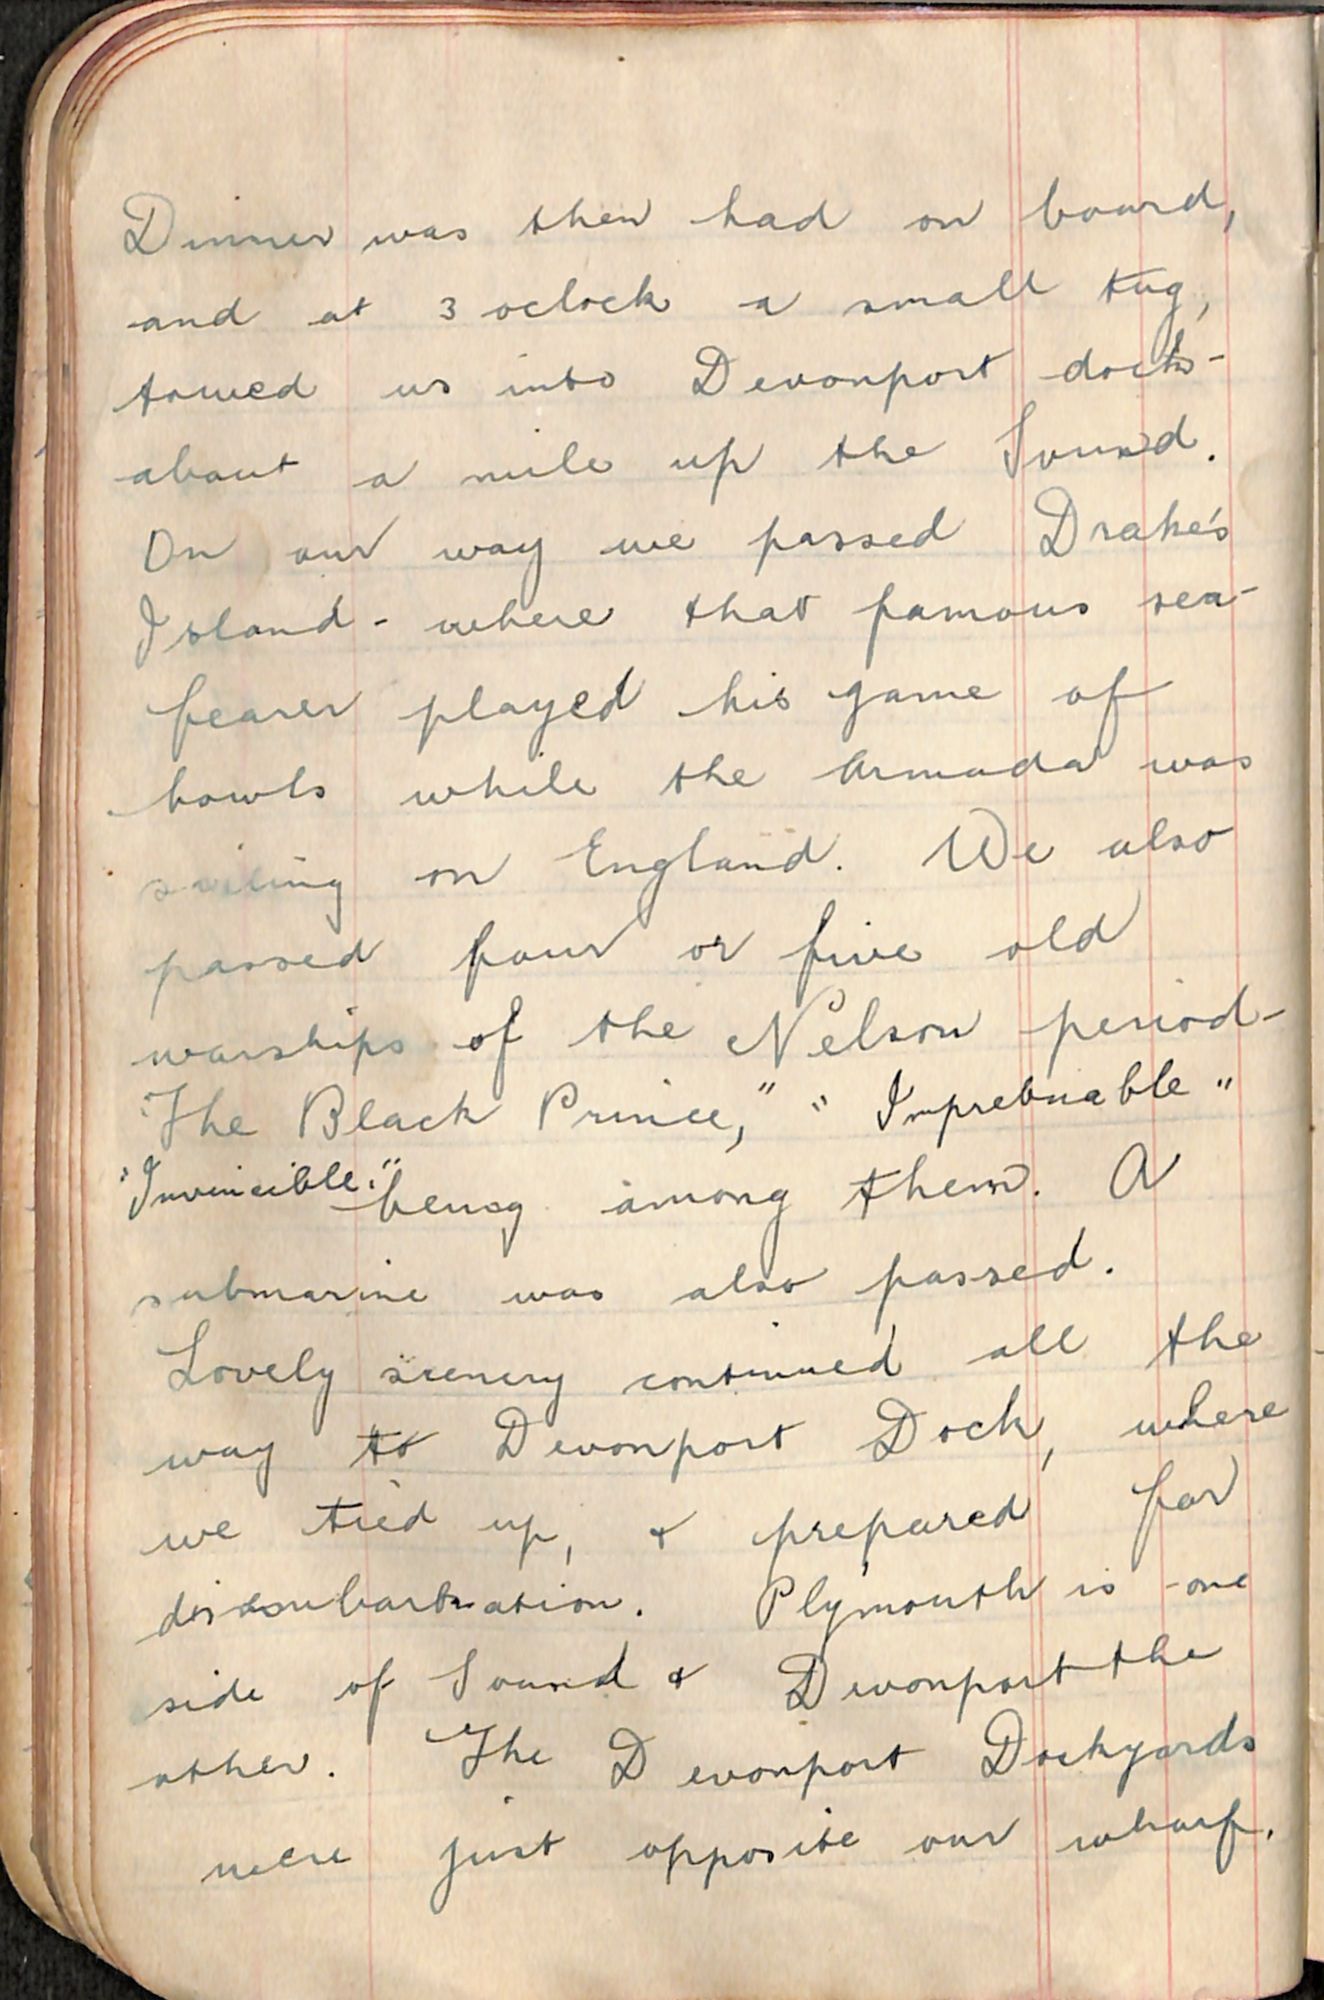 Dinner was then had on board,
and at 3 oclock a small tug,
towed us into Devonport dock -
about a mile up the Sound.
On our way we passed Drake's
Island - where that famous sea-
fearer played his game of
bowls while the Armada was
sailing on England. We also
passed four or five old
warships of the Nelson period -
"The Black Prince," "Imprebnable"
"Invincible." being among them. A
submarine was also passed.
Lovely scenery continued all the
way to Devonport Dock, where
we tied up, & prepared for
disembarkation. Plymouth is one
side of Sound & Devonport the
other. The Devonport Dockyards
were just opposite our wharf.